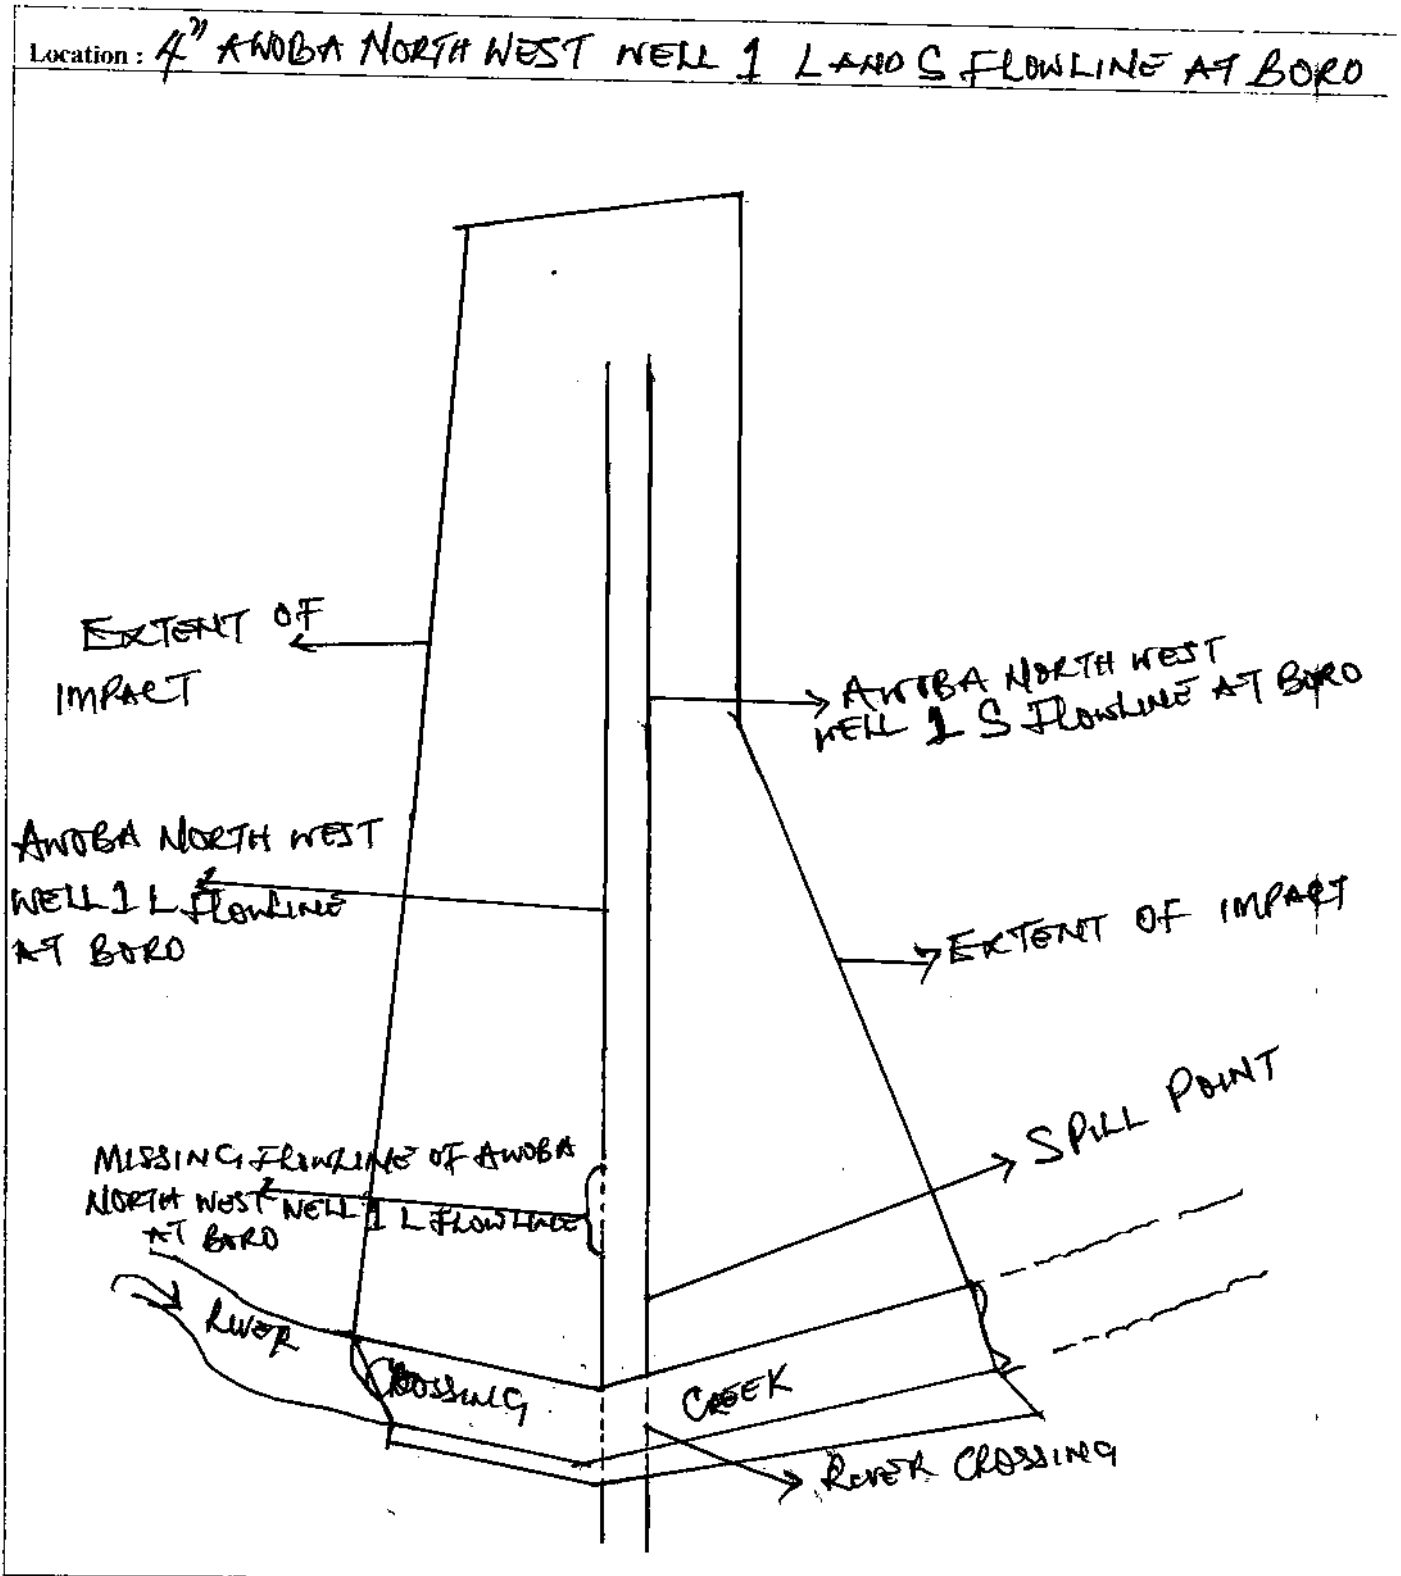 Location : 4" AWOBA NORTH WEST WELL 1 L AND S FLOWLINE AT BORO
EXTENT OF
IMPACT
AWOBA NORTH WEST
WELL 1 S FLOWLINE AT BORO
AWOBA NORTH WEST
WELL 1 L FLOWLINE
AT BORO
EXTENT OF IMPACT
SPILL POINT
MISSING FLOWLINE OF AWOBA
NORTH WEST WELL 1 L FLOWLINE
AT BORO
RIVER
CROSSING
CREEK
RIVER CROSSING